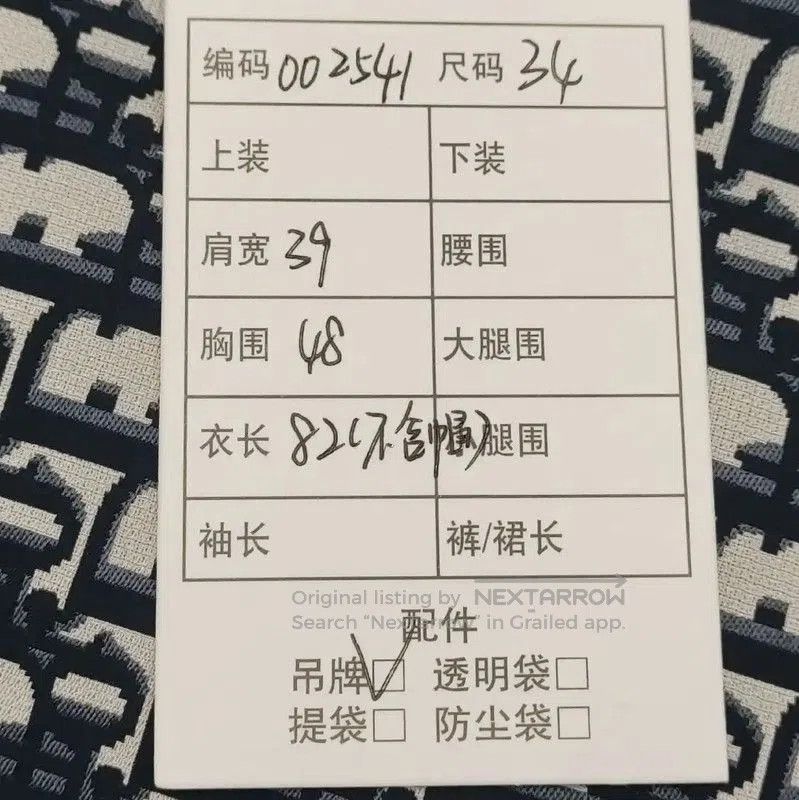 编码 002541 尺码 34
上装 下装
肩宽 39 腰围
胸围 48 大腿围
衣长 82(不含帽) 腿围
袖长 裤/裙长
Original listing by NEXTARROW
Search "Nextarrow" in Grailed app.
配件
吊牌 透明袋
提袋 防尘袋